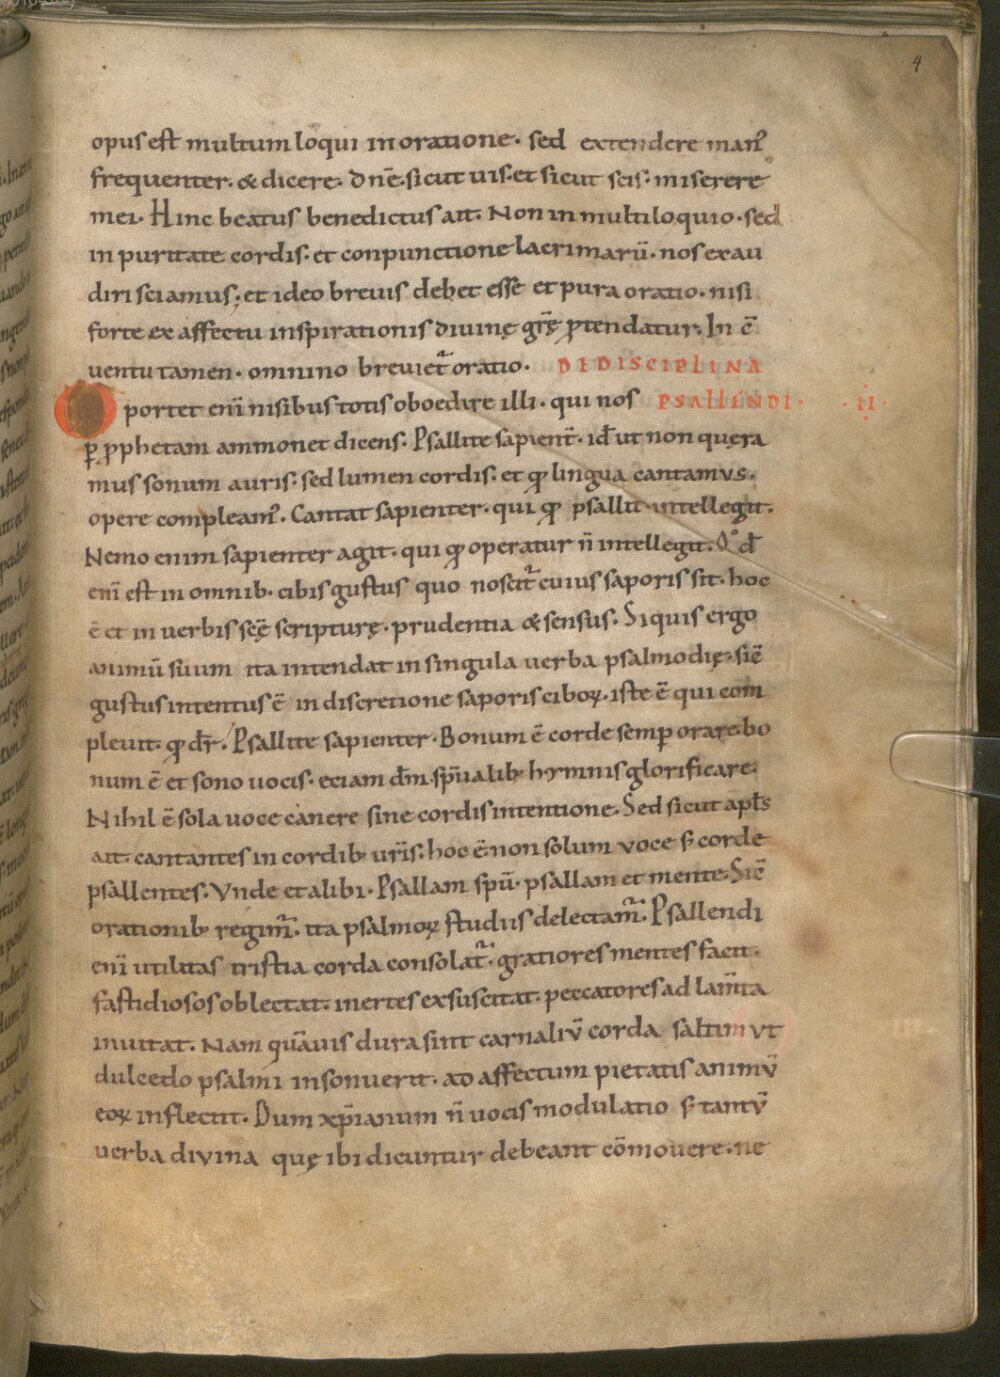 4
opus est multum loqui in oratione· sed extendere man᷒
frequenter· & dicere· dn̄e· sicut uis· et sicut scis· miserere
mei· Hinc beatus benedictus ait· Non in multiloquio· sed
in puritate cordis· et conpunctione lacrimarū· nos exau
diri sciamus· et ideo breuis debet esse et pura oratio· nisi
forte ex affectu inspirationis diuinę grę̄ ꝓtendatur· In c̄
uentu tamen· omnino breuiet᷑ oratio· DE DISCIPLINA
Oportet enī nisibus totis oboedire illi· qui nos PSALLENDI· ·ii·
ꝑ ꝓphetam ammonet dicens· Psallite sapient̄· id̄ ut non quęra
mus sonum auris· sed lumen cordis· et qđ lingua cantamus·
opere compleam᷒· Cantat sapienter· qui qđ psallit intellegit·
Nemo enim sapienter agit· qui qđ operatur n̄ intellegit· Qͦd
enī est in omnib· cibis gustus quo noscit᷑ cuius saporis sit· hoc
ē et in uerbis scę̄ scripturę· prudentia & sensus· Siquis ergo
animū suum ita intendat in singula uerba psalmodię· sic̄
gustus intentus ē in discretione saporis ciboꝝ· iste ē qui com
pleuit· qđ dr̄· Psallite sapienter· Bonum ē corde semꝑ orare· bo
num ē et sono uocis· eciam dm̄ spūalib; hymnis glorificare·
Nihil ē sola uoce canere sine cordis intentione· Sed sicut apls̄
ait· cantantes in cordib; urīs· hoc ē· non solum voce s; corde
psallentes· Vnde et alibi· Psallam spū· psallam et mente· Sic̄
orationib; regim᷑· ita psalmoꝝ studiis delectam᷑· Psallendi
enī utilitas tristia corda consolat᷑· gratiores mentes facit·
fastidiosos oblectat· inertes exsuscitat· peccatores ad lam̄ta
inuitat· Nam quāuis dura sint carnaliū corda saltim ut
dulcedo psalmi insonuerit· ad affectum pietatis animū
eoꝝ inflectit· Dum xp̄ianum n̄ uocis modulatio s; tantū
uerba diuina quę ibi dicuntur debeant cōmouere· ne